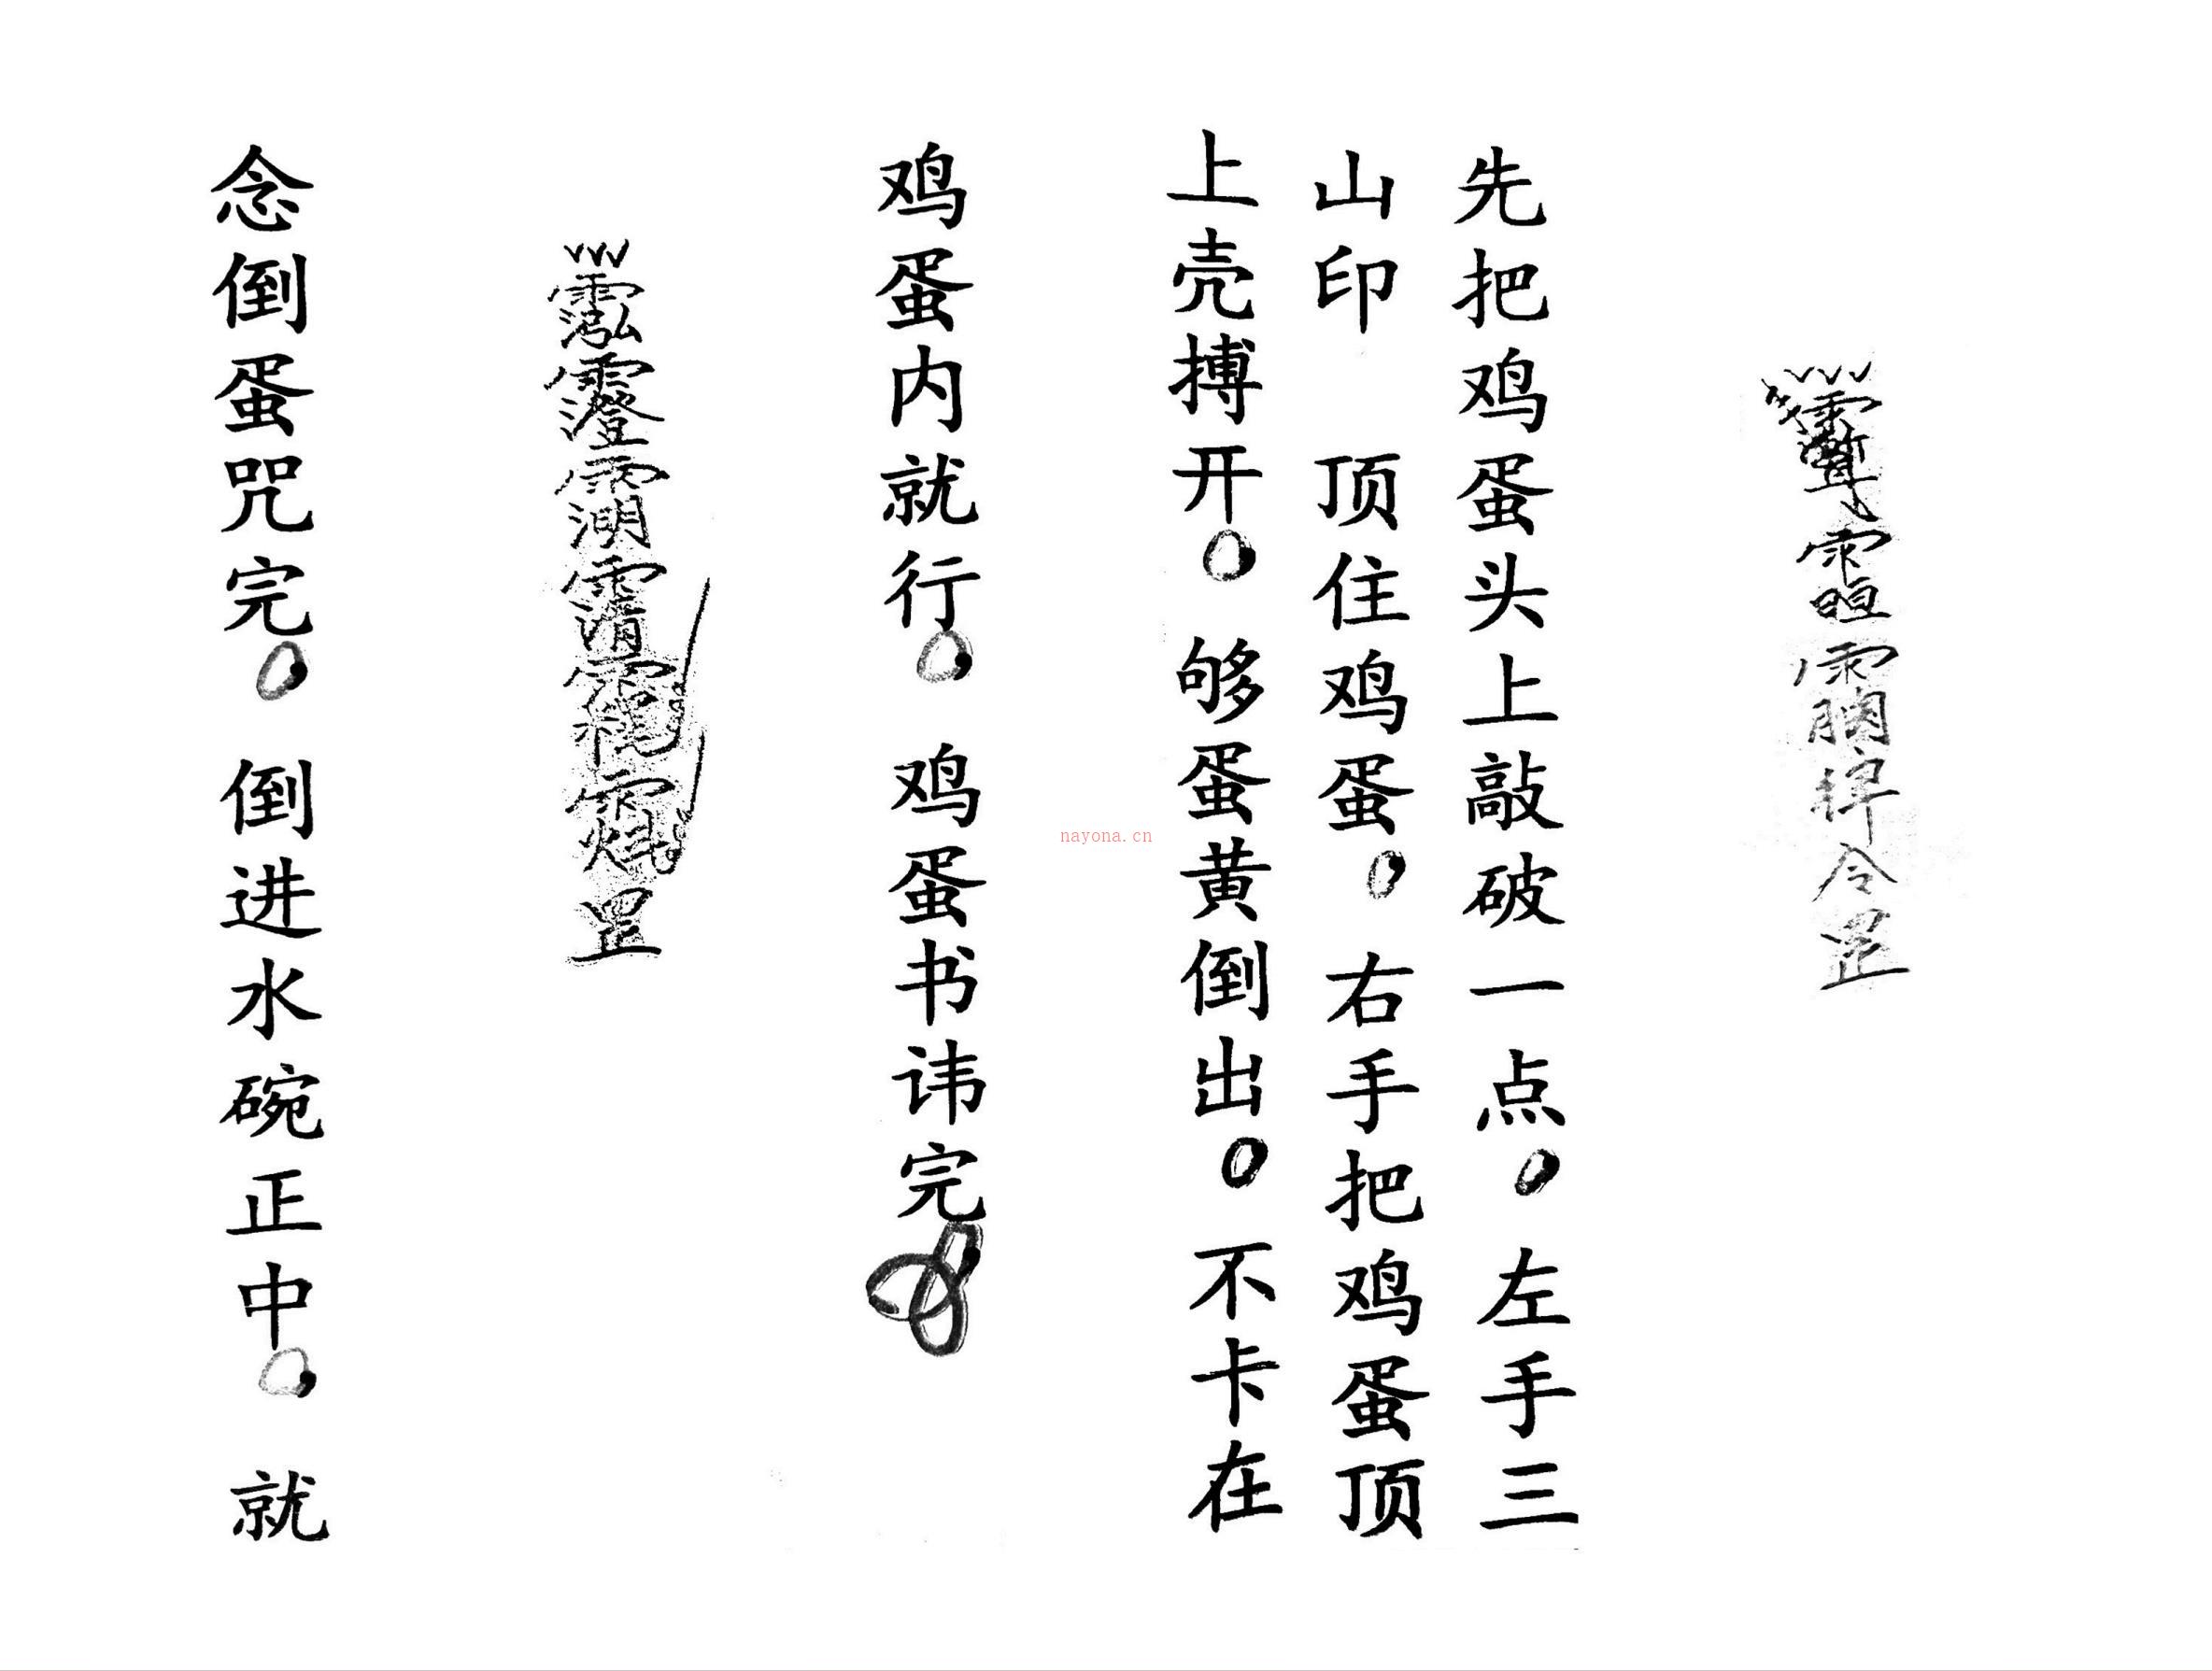 先把鸡蛋头上敲破一点。左手三
山印 顶住鸡蛋。右手把鸡蛋顶
上壳搏开。够蛋黄倒出。不卡在
鸡蛋内就行。鸡蛋书讳完
念倒蛋咒完。倒进水碗正中。就
nayona.cn